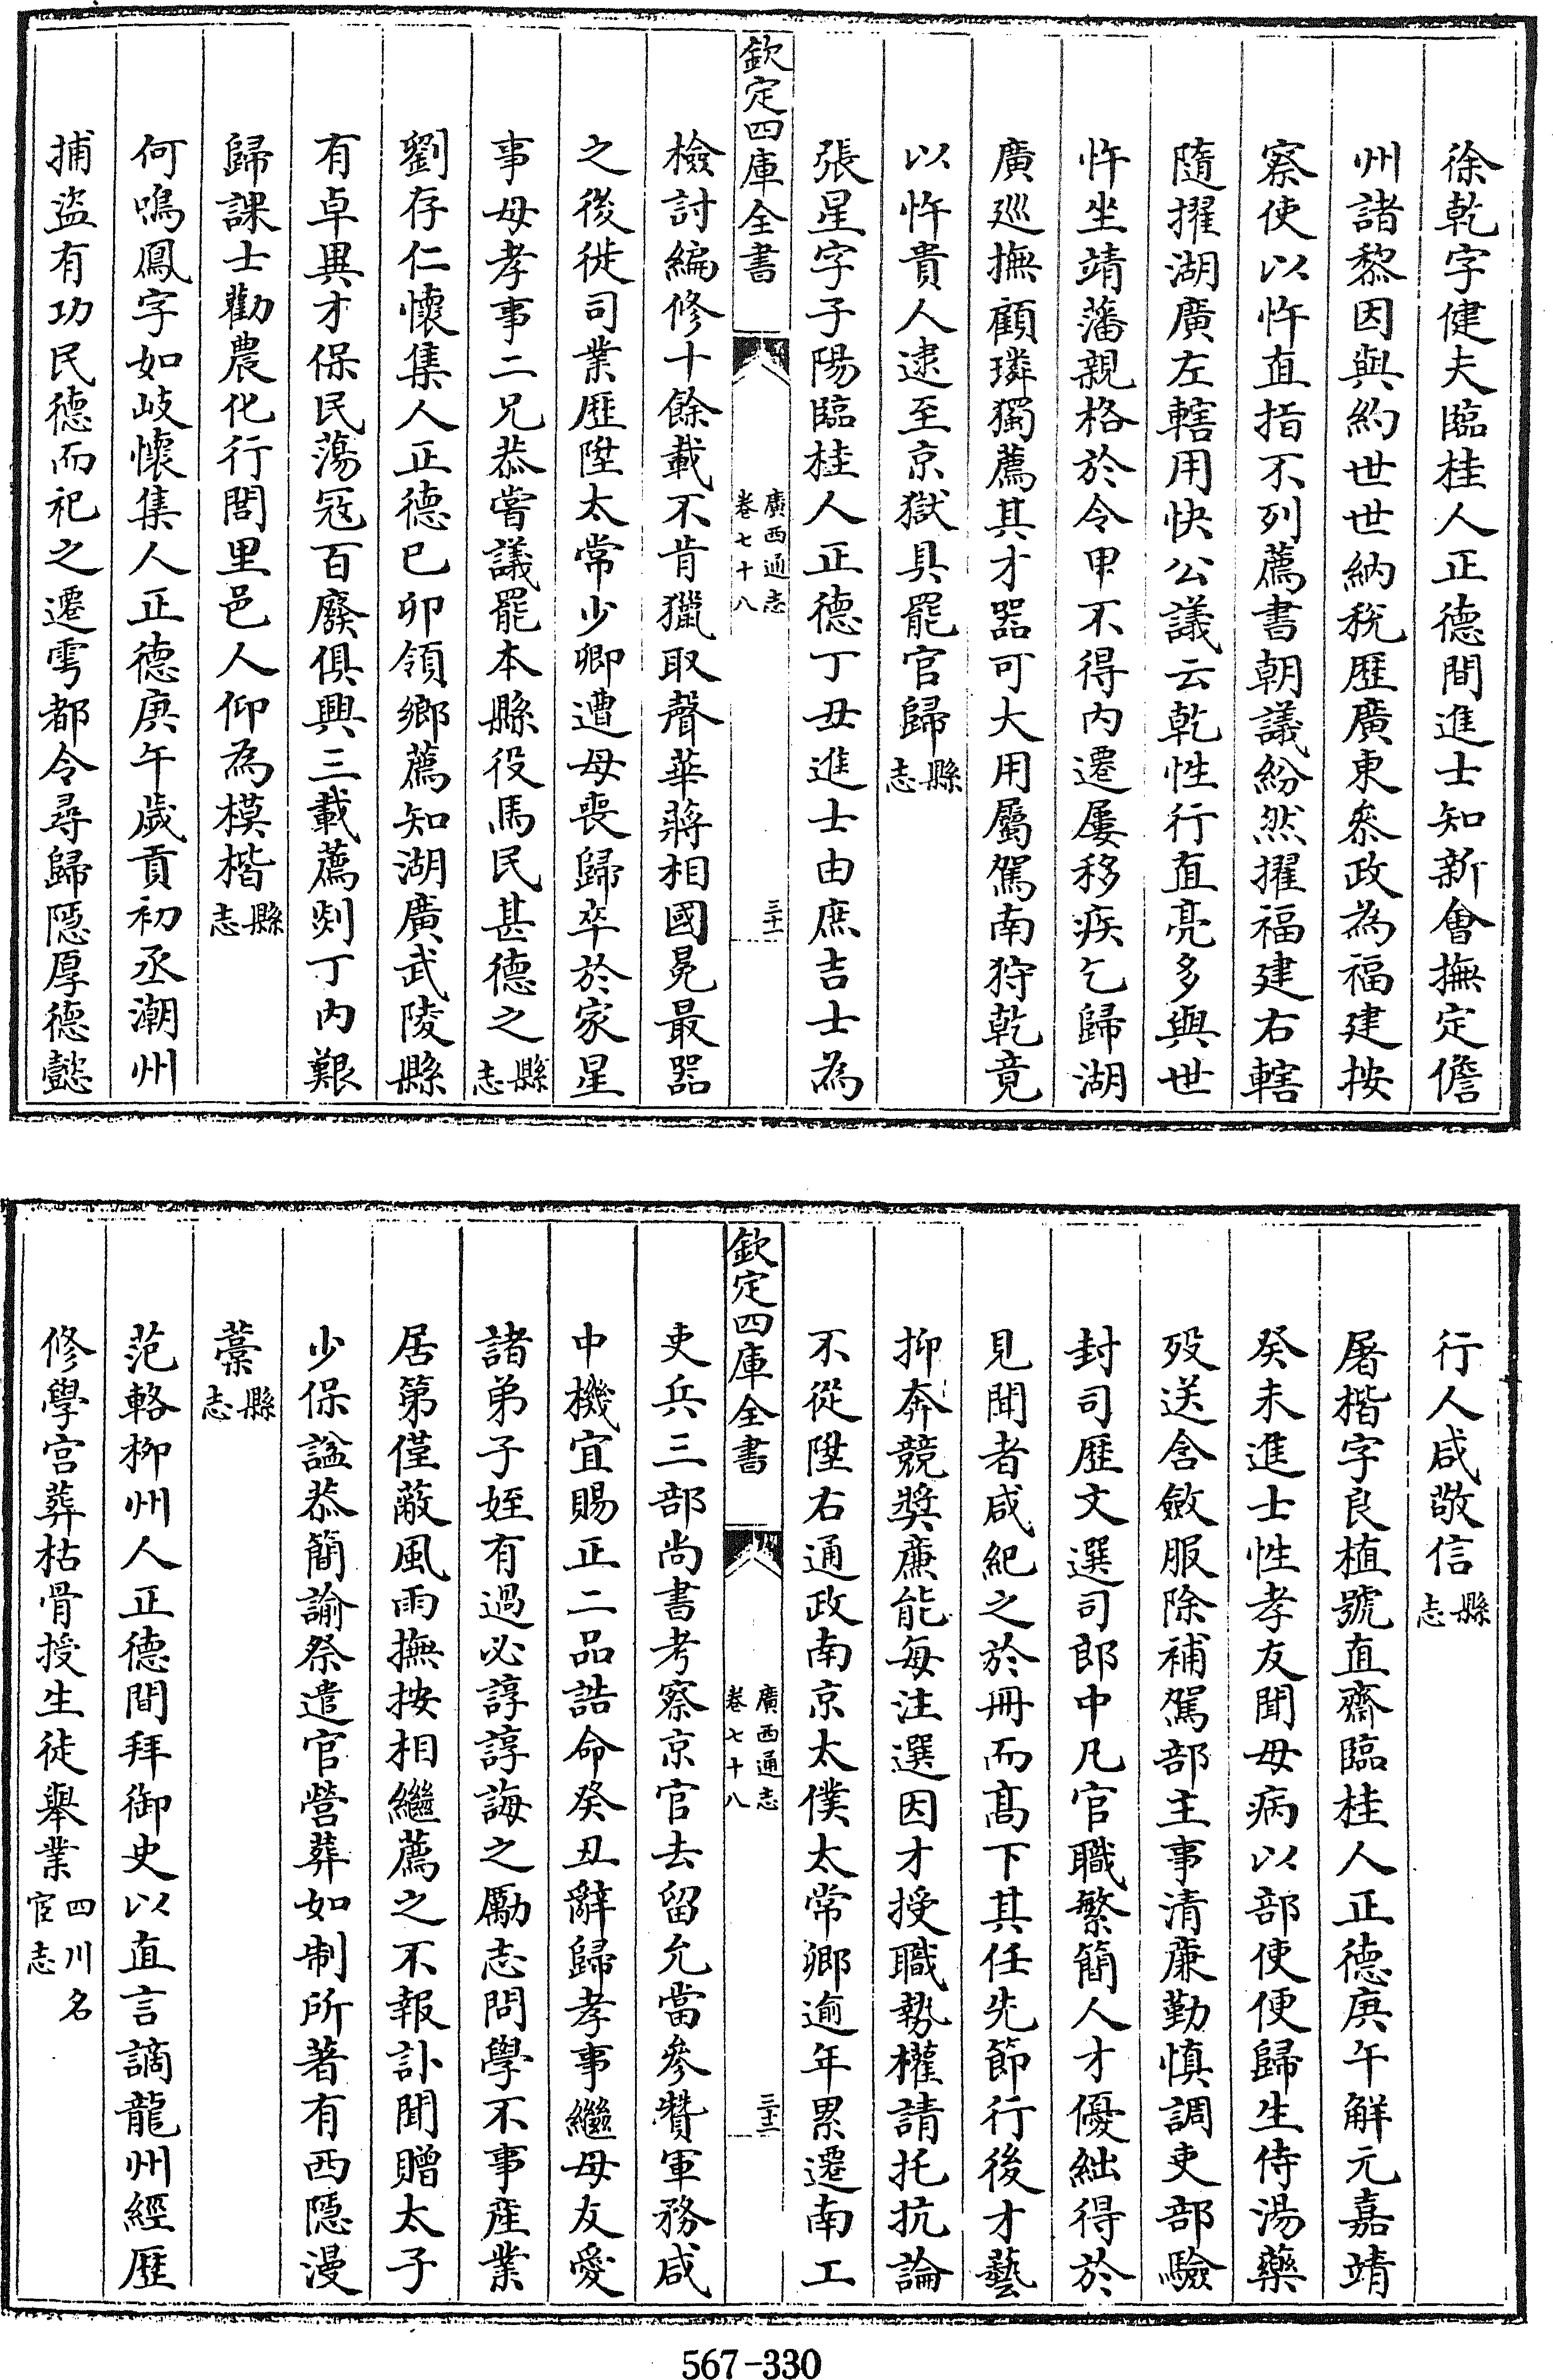 徐乾字健夫臨桂人正德間進士知新會撫定儋
州諸黎因與約世世納稅歴廣東叅政為福建按
察使以忤直指不列薦書朝議紛然擢福建右轄
隨擢湖廣左轄用快公議云乾性行直亮多與世
忤坐靖藩親格於令甲不得内遷屢移疾乞歸湖
廣巡撫顧璘獨薦其才器可大用屬駕南狩乾竟
以忤貴人逮至京獄具罷官歸縣志
張星字子陽臨桂人正德丁丑進士由庶吉士為
欽定四庫全書
廣西通志
卷七十八
三十一
檢討編修十餘載不肯獵取聲華蔣相國冕最器
之後徙司業歴陞太常少卿遭母喪歸卒於家星
事母孝事二兄恭嘗議罷本縣役馬民甚德之縣志
劉存仁懷集人正德已卯領鄉薦知湖廣武陵縣
有卓異才保民蕩冦百廢俱興三載薦剡丁内艱
歸課士勸農化行閭里邑人仰為模楷縣志
何鳴鳳字如岐懷集人正德庚午歲貢初丞潮州
捕盜有功民德而祀之遷雩都令尋歸隠厚德懿
行人咸敬信縣志
屠楷字良植號直齋臨桂人正德庚午解元嘉靖
癸未進士性孝友聞母病以部使便歸生侍湯藥
歿送含斂服除補駕部主事清亷勤慎調吏部驗
封司歴文選司郎中凡官職繁簡人才優絀得於
見聞者咸紀之於冊而髙下其任先節行後才藝
抑奔競奬亷能每注選因才授職勢權請托抗論
不從陞右通政南京太僕太常卿逾年累遷南工
欽定四庫全書
廣西通志
卷七十八
三十二
吏兵三部尚書考察京官去留允當參贊軍務咸
中機宜賜正二品誥命癸丑辭歸孝事繼母友愛
諸弟子姪有過必諄諄誨之勵志問學不事産業
居第僅蔽風雨撫按相繼薦之不報訃聞贈太子
少保諡恭簡諭祭遣官營葬如制所著有西隠漫
藁縣志
范輅柳州人正德間拜御史以直言謫龍州經歴
修學宫葬枯骨授生徒舉業四川名宦志
567-330